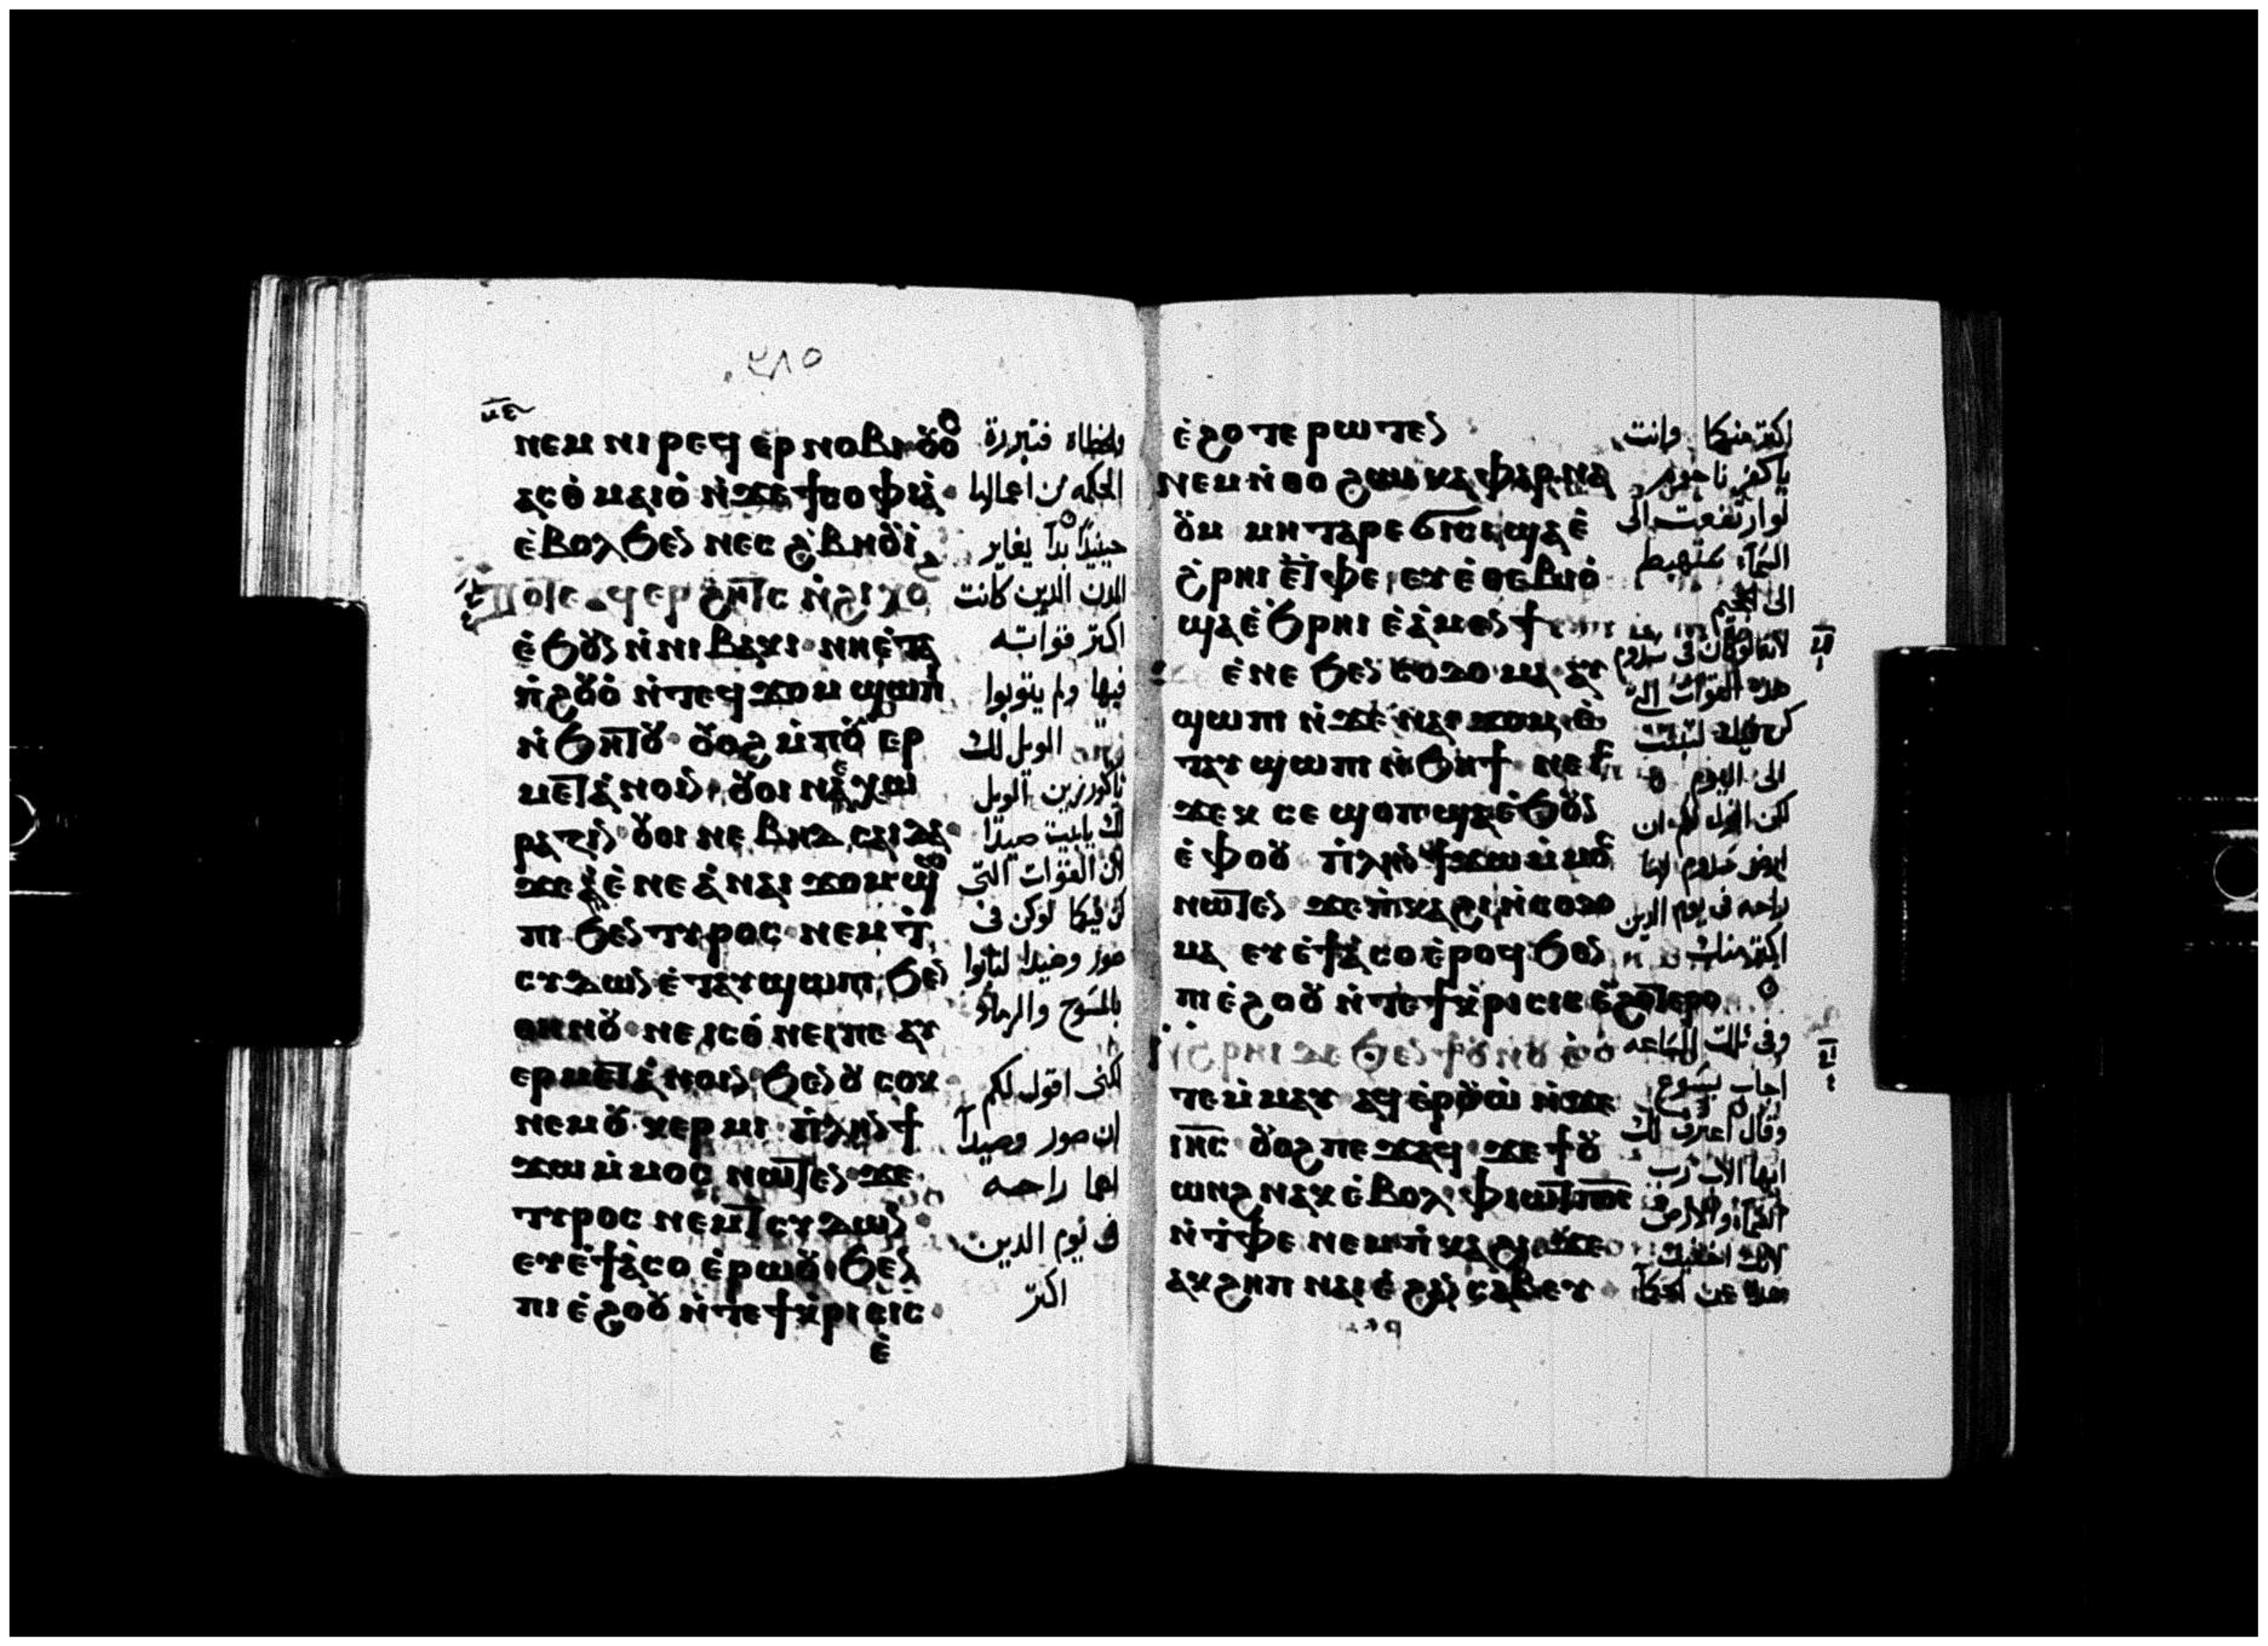 ⲛⲉⲙ ⲛⲓ ⲣⲉϥ ⲉⲣ ⲛⲟⲃⲓ
ⲁⲥⲑⲙⲁⲓⲟ ⲛ̀ϫⲉ ϯⲥⲟⲫⲓⲁ
ⲉ̀ⲃⲟⲗ ϧⲉⲛ ⲛⲉⲥ ϩ̀ⲃⲏⲟⲩⲓ
ⲉ̀ϧⲟⲩⲛ ⲛ̀ⲛⲓ ⲃⲁⲕⲓ ⲛⲏⲉ̀ⲧⲁ
ⲡ̀ϩⲟⲩⲟ̀ ⲛ̀ⲧⲉϥ ϫⲟⲙ ϣⲱⲡⲓ
ⲛ̀ϧⲏⲧⲟⲩ ⲟⲩⲟϩ ⲙ̀ⲡⲟⲩ ⲉⲣ
ⲙⲉⲧⲁ̀ⲛⲟⲓⲛ ⲟⲩⲟⲓ ⲛⲉ ⲭⲱ
ⲣⲁⲍⲓⲛ ⲟⲩⲟⲓ ⲛⲉ ⲃⲏⲇⲥⲁⲓⲇⲁ
ϫⲉ ⲉ̀ⲛⲉ ⲁ̀ ⲛⲁⲓ ϫⲟⲙ ϣⲱ
ⲡⲓ ϧⲉⲛ ⲧⲩⲣⲟⲥ ⲛⲉⲙ ⲧ̀
ⲥⲩⲇⲱⲛ ⲉ̀ⲧⲁⲩ ϣⲱⲡⲓ ϧⲉⲛ
ⲑⲏⲛⲟⲩ ⲛⲉ ⲓⲥϫⲉⲛ ⲡⲉ ⲁⲩ
ⲉⲣⲙⲉⲧⲁ̀ⲛⲟⲓⲛ ϧⲉⲛ ⲟⲩ ⲥⲟⲕ
ⲛⲉⲙ ⲟⲩ ⲕⲉⲣⲙⲓ ⲡ̀ⲗⲏⲛ ϯ
ϫⲱ ⲙ̀ⲙⲟⲥ ⲛⲱⲧⲉⲛ ϫⲉ
ⲧⲩⲣⲟⲥ ⲛⲉⲙ ⲧⲥⲩⲇⲱⲛ
ⲉⲩⲉ̀ϯⲁ̀ⲥⲟ ⲉ̀ⲣⲱⲟⲩ ϧⲉⲛ
ⲡⲓ ⲉ̀ϩⲟⲟⲩ ⲛ̀ⲧⲉ ϯⲕ̀ⲣⲓⲥⲓⲥ
ⲉ̀
والخطاه فتبررة
الحكمه من اعمالها
حينيدًا بدا يعاير
المدن الدين كانت
اكتر قواته
فيها ولم يتوبوا
الويل لك
ياكورزين الويل
لك يابيت صيدا
لان القوات التي
كن فيكما لوكن في
صور وصيدا لتابوا
بالمسوح والرماد
لكنى اقول لكم
ان صور وصيدا
لهما راحه
في يوم الدين
اكتر
ⲉ̀ϩⲟⲧⲉ ⲣⲱⲧⲉⲛ
ⲛⲉⲙ ⲛ̀ⲑⲟ ϩⲱⲓ ⲕⲁⲫⲁⲣⲛⲁ
ⲟⲩⲙ ⲙⲏ ⲧⲉⲣⲁ ϭⲓⲥⲓ ϣⲁ ⲉ̀
ϩ̀ⲣⲏⲓ ⲉ̀ⲧ̀ⲫⲉ ⲉⲩⲉ̀ⲑⲉⲃⲓⲟ
ϣⲁ ⲉ̀ϧⲣⲏⲓ ⲉ̀ⲁ̀ⲙⲉⲛϯ
ⲉⲛⲉ ϧⲉⲛ ⲥⲟⲇⲟⲙⲁ ⲁⲩ
ϣⲱⲡⲓ ⲛ̀ϫⲉ ⲛⲁⲓ ϫⲟⲙ ⲉ̀
ⲧⲁⲩ ϣⲱⲡⲓ ⲛ̀ϧⲏϯ
ϫⲉⲕ ⲥⲉ ϣⲟⲡ ϣⲁ ⲉ̀ϧⲟⲩⲛ
ⲉ̀ ⲫⲟⲟⲩ ⲡ̀ⲗⲏⲛ ϯϫⲱ ⲙ̀ⲙⲟⲥ
ⲛⲱⲧⲉⲛ ϫⲉ ⲡ̀ⲕⲁϩⲓ ⲛ̀ⲥⲟⲇⲟ
ⲙⲁ ⲉⲩⲉ̀ϯⲁ̀ⲥⲟ ⲉ̀ⲣⲟϥ ϧⲉⲛ
ⲡⲓ ⲉ̀ϩⲟⲟⲩ ⲛ̀ⲧⲉ ϯⲕ̀ⲣⲓⲥⲓⲥ ⲉ̀ϩⲟⲧⲉⲣⲟ
ⲧⲉⲙ̀ⲙⲁⲩ ⲁϥ ⲉⲣⲟⲩⲱ̀ ⲛ̀ϫⲉ
ⲓⲏⲥ ⲟⲩⲟϩ ⲡⲉϫⲁϥ ϫⲉ ϯⲟⲩ
ⲱⲛϩ ⲛⲁⲕ ⲉ̀ⲃⲟⲗ ⲫⲓⲱⲧ ⲡ⳪
ⲛ̀ⲧ̀ⲫⲉ ⲛⲉⲙ ⲡ̀ⲕⲁϩⲓ ϫⲉ
ⲁⲕϩⲉⲡ ⲛⲁⲓ ⲉ̀ϩⲁⲛ ⲥⲁⲃⲉⲩ
اكتر منكما وانت
ياكفرناحوم
لوارتفعت الى
السماء ستهبط
الى الجحيم
لانه لوكان في سدوم
هده القوات
الى اليوم
لكن اقول لكم ان
ارض سدوم لها
راحه في يوم الدين
اكتر منك
وفي تلك الساعه
اجاب يسوع
وقال اعترف لك
ايها الاب رب
السماء والارض
لانك اخفيت